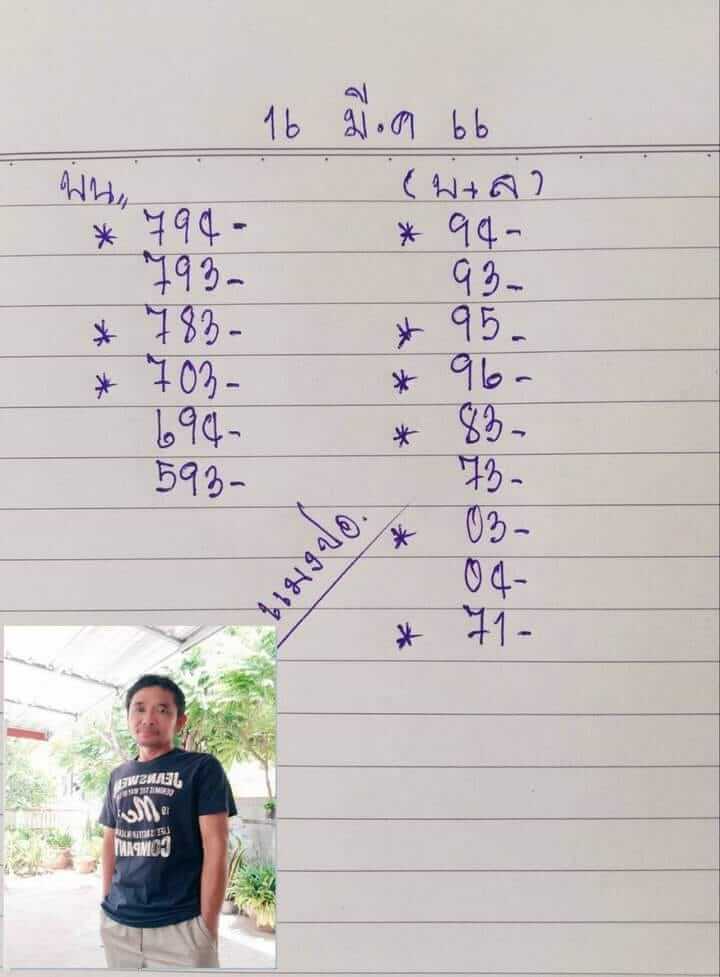 16 มี.ค 66
บน,,
* 794-
793-
* 783-
* 703-
694-
593-
(บ+ล)
* 94-
93-
* 95-
* 96-
* 83-
73-
* 03-
04-
* 71-
แมงปอ.
JEANSWEA
Me
COMPANY